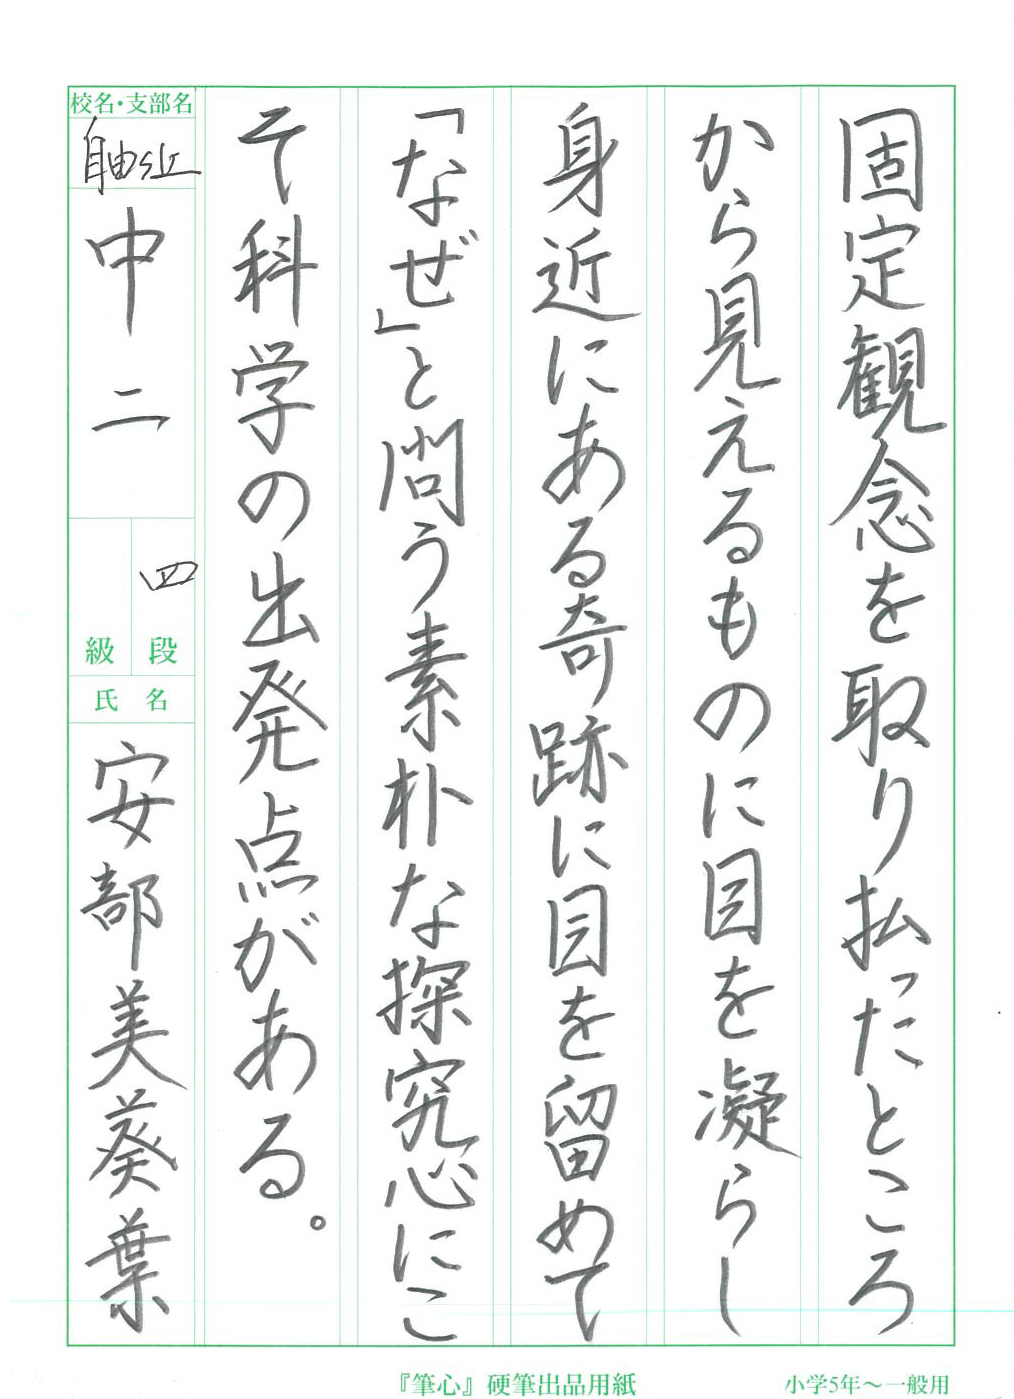 固定観念を取り払ったところ
から見えるものに目を凝らし
身近にある奇跡に目を留めて
「なぜ」と問う素朴な探究心にこ
そ科学の出発点がある。
校名・支部名
自由が丘
中二
四
段
級
氏名
安部美葵葉
『筆心』硬筆出品用紙
小学5年～一般用